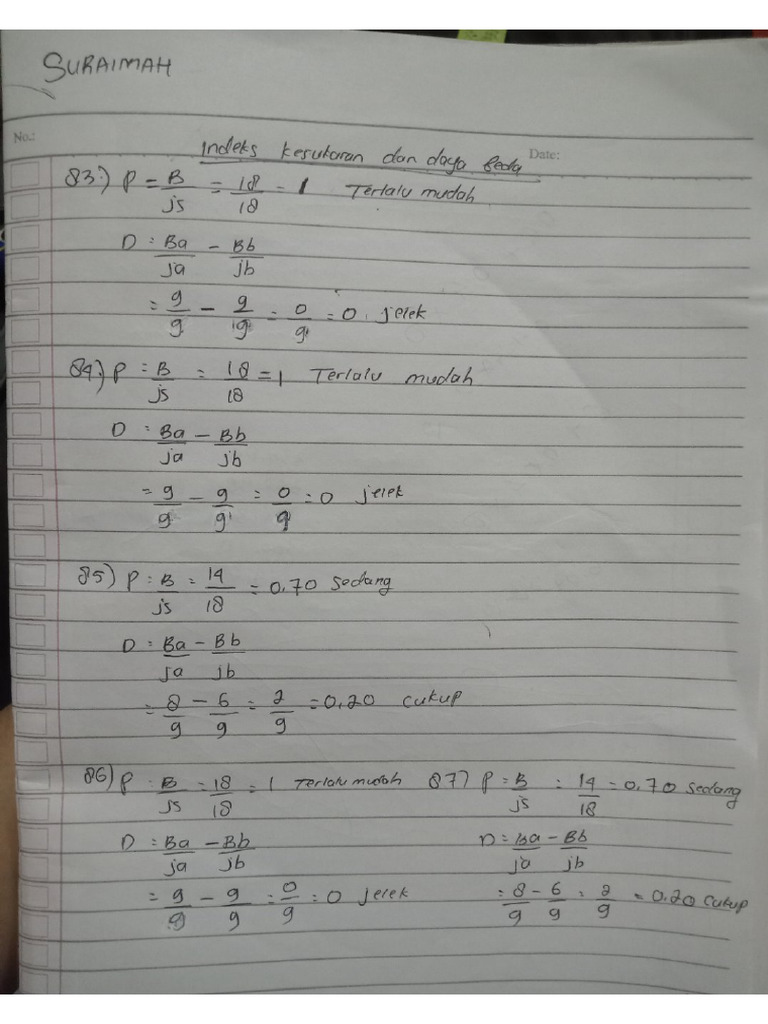 SURAIMAH
No.:
Indeks kesukaran dan daya beda Date:
83.) P = B/js = 18/18 = 1 Terlalu mudah
D = Ba/ja - Bb/jb
= 9/9 - 9/9 = 0/9 = 0. jelek
84.) P = B/js = 18/18 = 1 Terlalu mudah
D = Ba/ja - Bb/jb
= 9/9 - 9/9 = 0/9 = 0 jelek
85) P = B/js = 14/18 = 0,70 Sedang
D = Ba/ja - Bb/jb
= 8/9 - 6/9 = 2/9 = 0,20 cukup
86) P = B/js = 18/18 = 1 Terlalu mudah
D = Ba/ja - Bb/jb
= 9/9 - 9/9 = 0/9 = 0 jelek
87) P = B/js = 14/18 = 0,70 Sedang
D = Ba/ja - Bb/jb
= 8/9 - 6/9 = 2/9 = 0.20 cukup